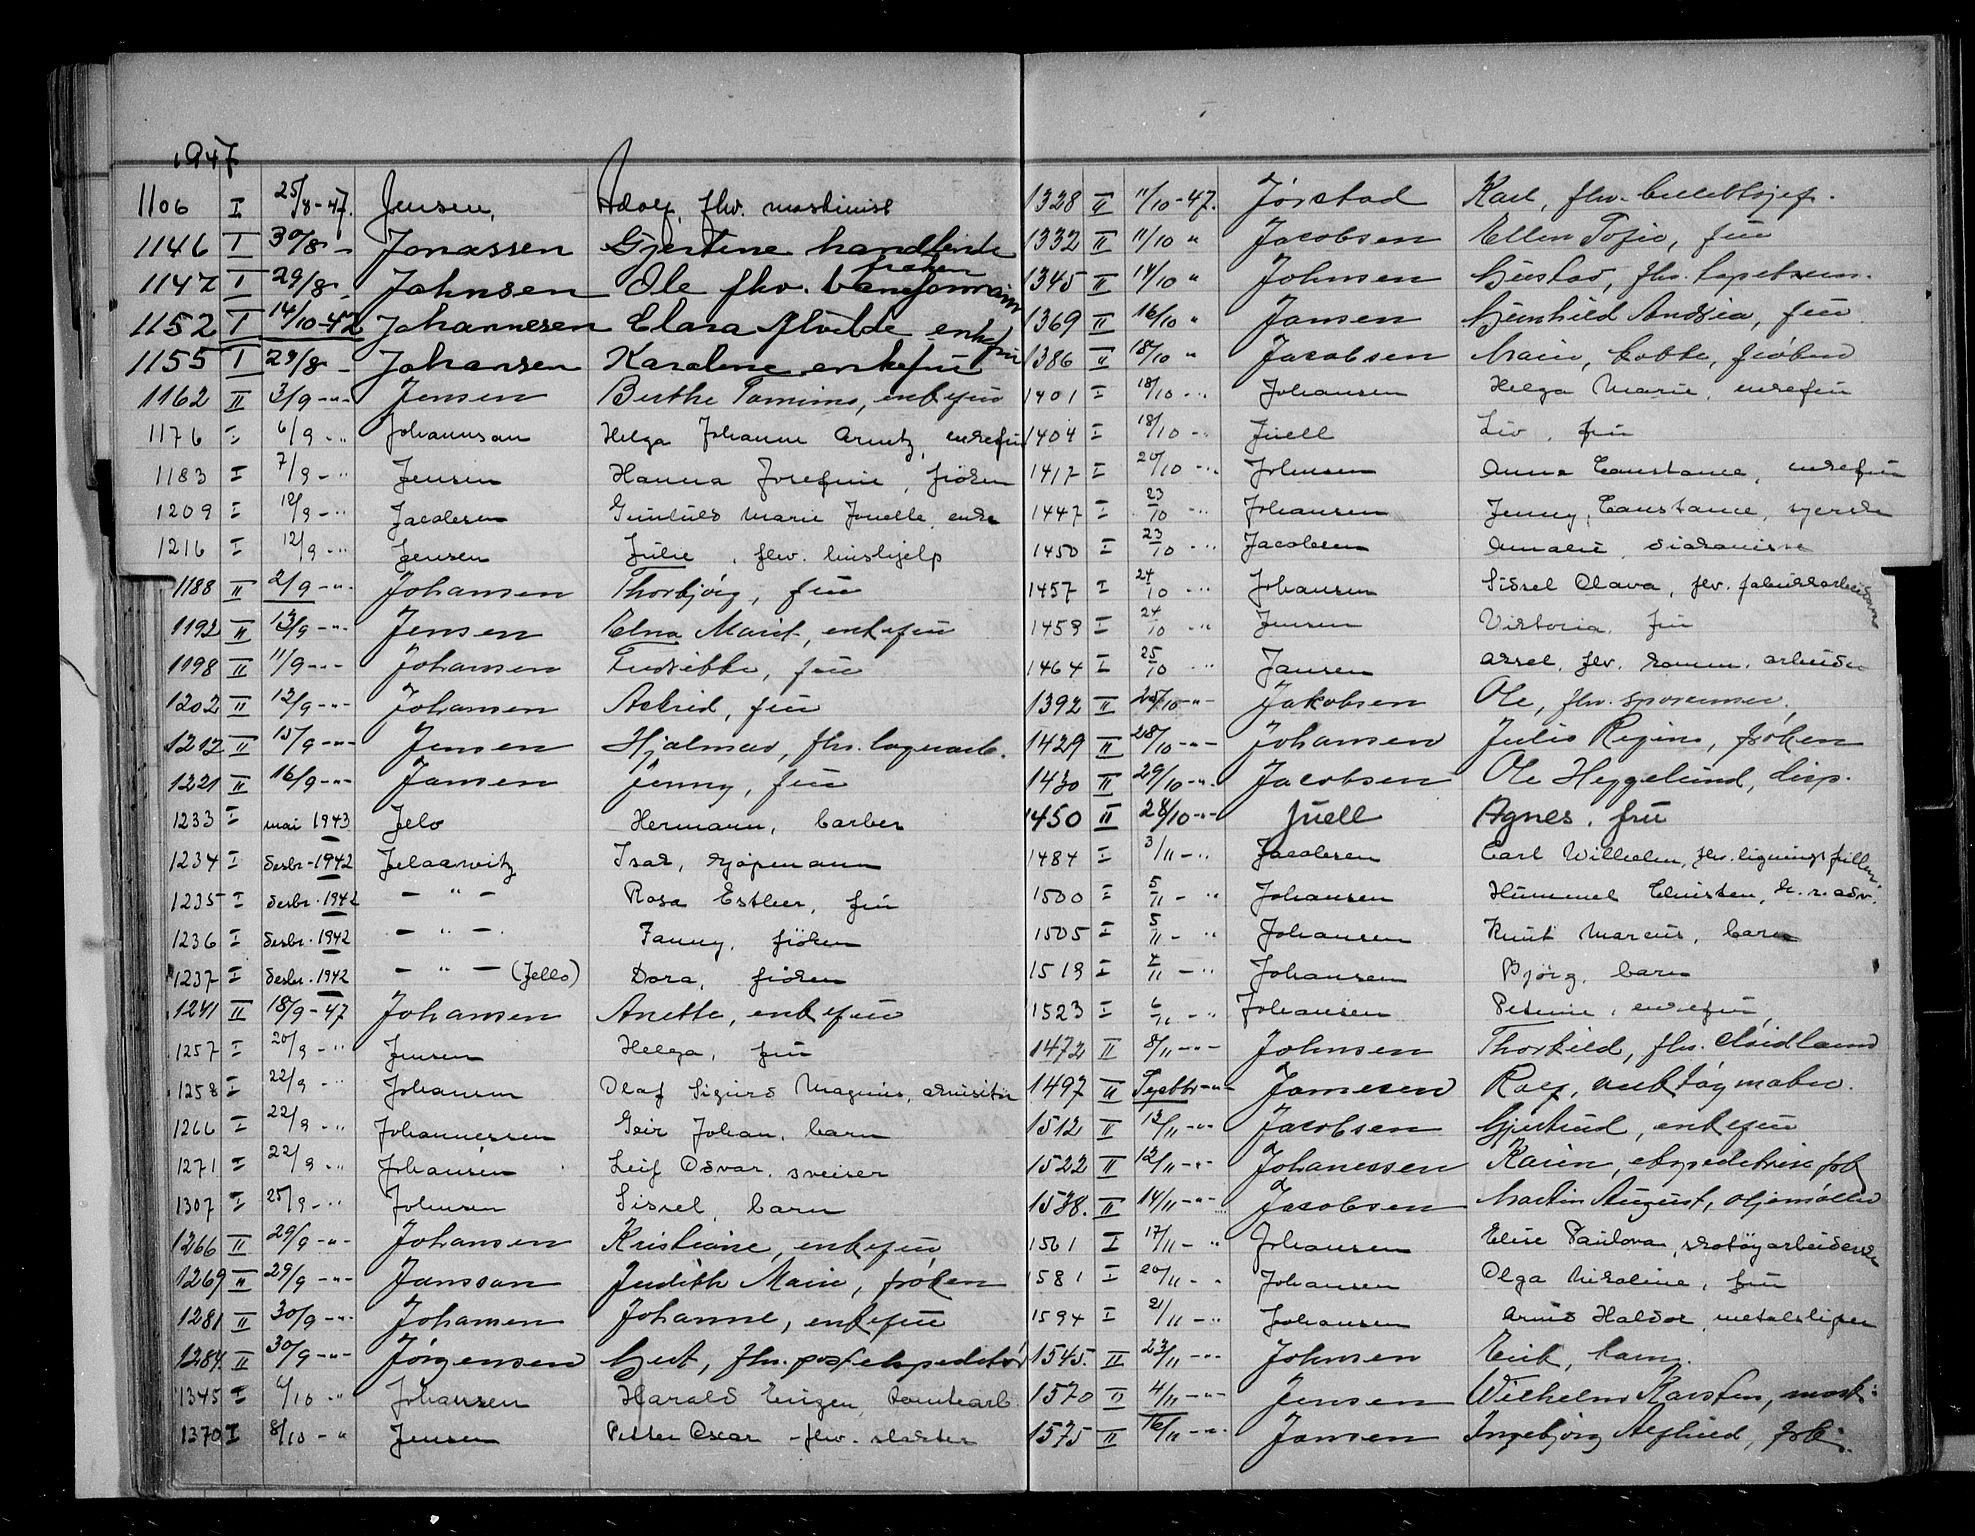 1947
1106 I 25/8-47. Jensen, Adolf, fhv. maskinist
1146 I 30/8 - Jonassen Gjertine handlende
frøken
1147 I 29/8 - Johnsen Ole fhv. baneformann
1152 I 14/10-42 Johannesen Clara Alvilde enkefru
1155 I 29/8 - Johansen Karoline enkefru
1162 II 3/9 -"- Jensen Berthe enkefru
1176 I 6/9 -" Johannson Helga Johanne Arntz, enkefru
1183 I 7/9 -" Jensen Hanna Josefine, frøken
1209 I 12/9 -" Jacobsen Gunhild Marie Jonette, enke
1216 I 12/9 -" Jensen Julie, fhv. hushjelp
1188 II 2/9 -"- Johansen Thorbjørg, fru
1192 II 13/9 -"- Jensen Elna Marit, enkefru
1198 II 11/9 -"- Johansen Fredrikke, fru
1202 II 12/9 -"- Johansen Astrid, fru
1212 II 15/9 -"- Jensen Hjalmar, fhv. lagerarb.
1221 II 16/9 -"- Jansen Jenny, fru
1233 I mai 1943 Jelo Hermann, barber
1234 I desbr. 1942 Jelaawitz Isak, kjøpmann
1235 I desbr. 1942 - " - Rosa Esther, fru
1236 I desbr. 1942 - " - Fanny, frøken
1237 I desbr. 1942 - " - (Jello) Dora, frøken
1241 II 18/9-47 Johansen Anette, enkefru
1257 I 20/9 -" Jensen Helga, fru
1258 I 22/9 -" Johansen Olaf Sigurd Magnus, akvisitør
1266 I 22/9 -" Johannessen Geir Johan, barn
1271 I 22/9 -" Johansen Leif Osvar, sveiser
1307 I 25/9 -" Johnsen Sissel, barn
1266 II 29/9 -"- Johansen Kristiane, enkefru
1269 II 29/9 -"- Jansson Judith Marie, frøken
1281 II 30/9 -"- Johansen Johanne, enkefru
1284. II 30/9 -"- Jørgensen Gert, fhv. postekspeditør
1345 I 6/10 -" Johansen Harald Eugen, tomtearb.
1370 I 8/10 -" Jensen Petter Oscar - fhv. slakter
1328 II 11/10-47. Jørstad Karl, fhv.
1332 II 11/10 " Jacobsen Ellen Sofie, fru
1345 II 14/10 " Johnsen Gustav, fhv.
1369 II 16/10 " Jansen Gunhild Andrea, fru
1386 II 18/10 " Jacobsen Marie, frøken
1401 I 18/10 -" Johansen Helga Marie, enkefru
1404 I 18/10 -" Juell Liv, fru
1417 I 20/10 -" Johnsen Anna Constance, enkefru
1447 I 23/10 -" Johansen Jenny, Constance, syerske
1450 I 23/10 -" Jacobsen Amalie, diakonisse
1457 I 24/10 -" Johansen Sissel Olava, fhv. fabrikkarbeiderske
1459 I 24/10 -" Jensen Viktoria, fru
1464 I 25/10 -" Jansen Aksel, fhv. komm. arbeider
1392 II 25/10 -"- Jakobsen Ole, fhv. sporrenser
1429 II 28/10 -"- Johansen Julie Regine, frøken
1430 II 29/10 -"- Jacobsen Ole Heggelund, disp.
1450 II 28/10 -"- Juell Agnes, fru
1484 I 3/11 -" Jacobsen Carl Wilhelm, fhv. ligningsfullm.
1500 I 5/11 -" Johansen Hummel Christen, h.r.adv.
1505 I 5/11 -" Johansen Knut Marcus, barn
1519 I 7/11 -" Johansen Bjørg, barn
1523 I 6/11 -" Johansen Petrine, enkefru
1472 II 8/11 -"- Johnsen Thorkild, fhv.
1497 II -"- Jamesen Rolf,
1512 II 12/11 -"- Jacobsen Gjertrud, enkefru
1522 II 12/11 -"- Johanessen Karen, ekspeditrise frk
1538. II 14/11 -"- Jacobsen Martin August, oljemøller
1561 I 17/11 -" Johansen Elise Paulova, skotøyarbeiderske
1581 I 20/11 -" Johansen Olga Nikoline, fru
1594 I 21/11 -" Johansen Arvid Haldor, metallsliper
1545. II 23/11 -"- Johnsen Erik, barn.
1570 II 4/11 -"- Jensen Wilhelm Karsten, mask.
1575 II 16/11 -"- Jansen Ingebjørg Alfhild, frk.